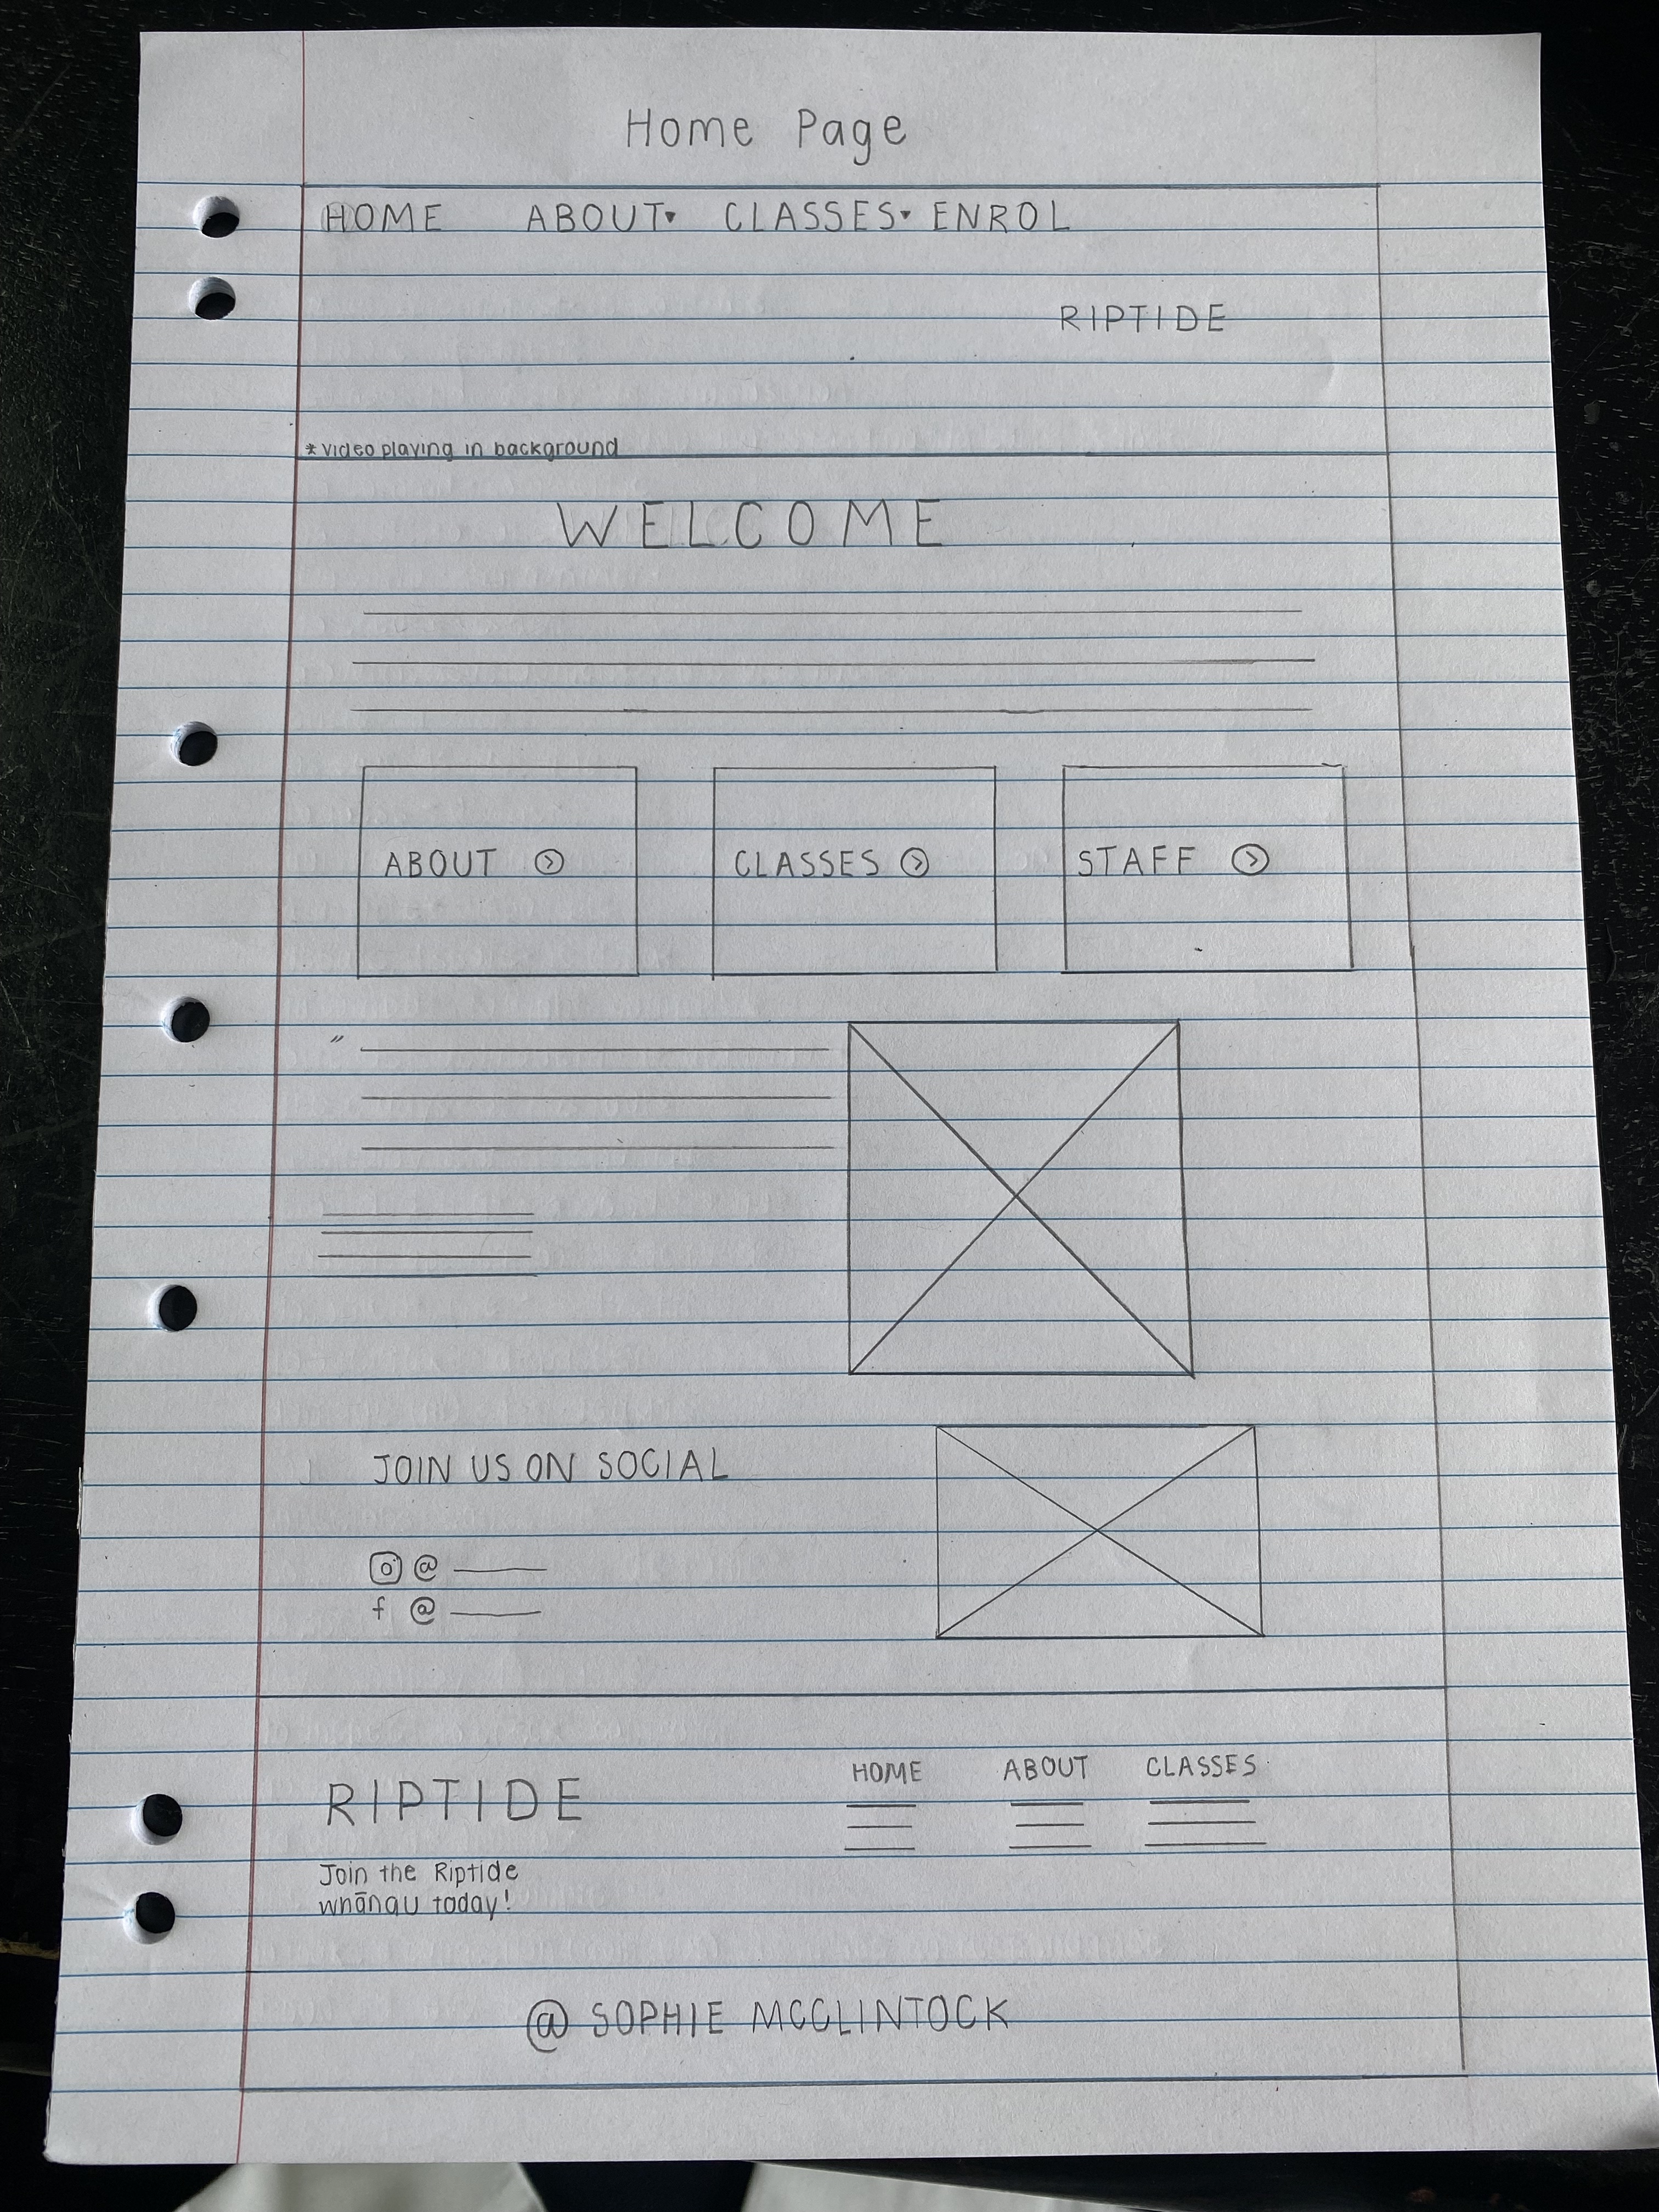 Home Page
HOME ABOUT▾ CLASSES▾ ENROL
RIPTIDE
* video playing in background
WELCOME
ABOUT CLASSES STAFF
"
JOIN US ON SOCIAL
@
f @
RIPTIDE
HOME ABOUT CLASSES
Join the Riptide
whānau today!
@ SOPHIE MCCLINTOCK